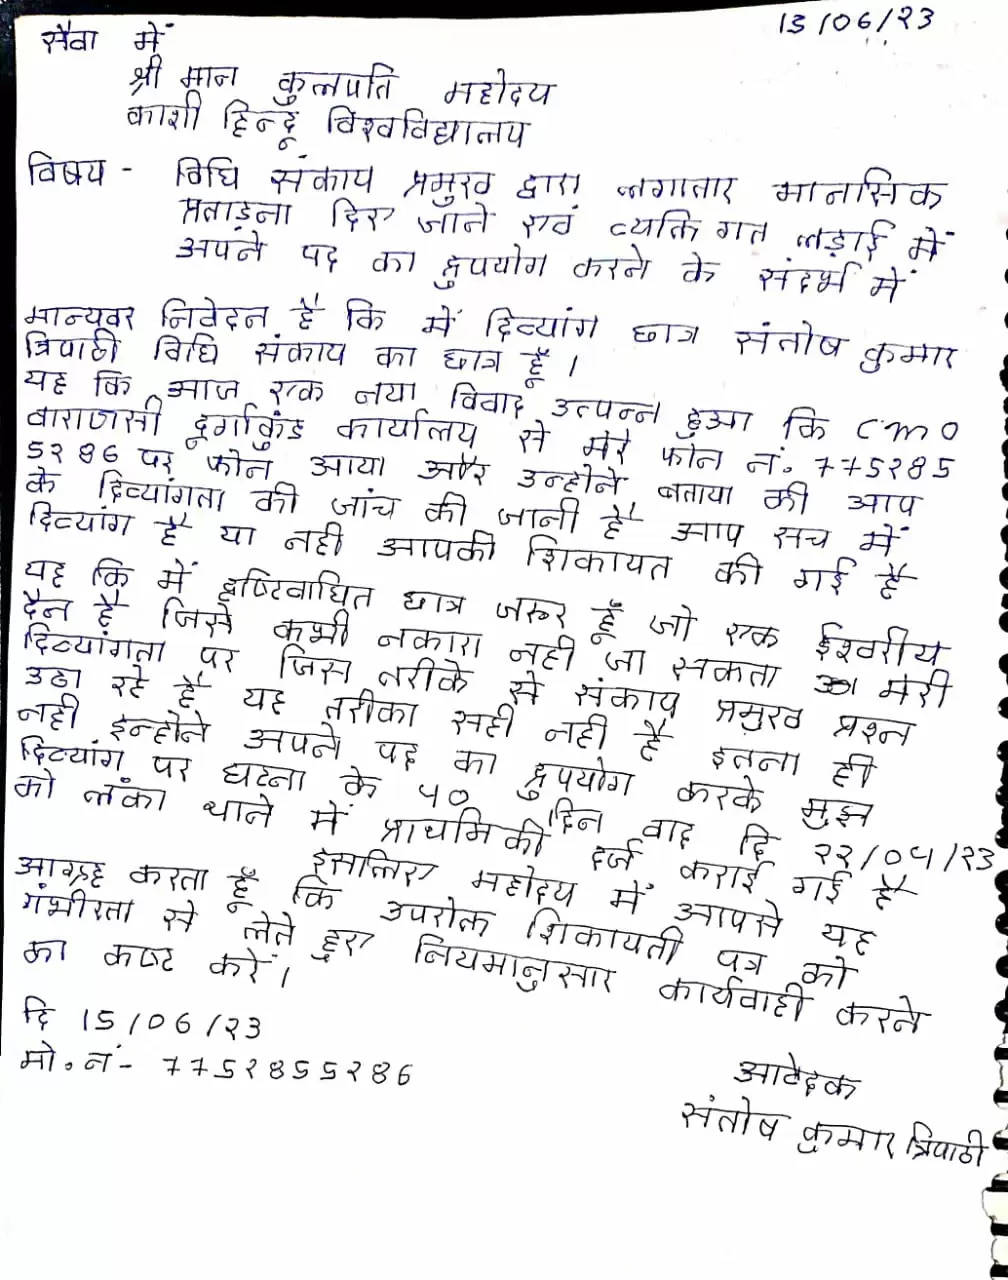 15/06/23
सेवा में
श्री मान कुलपति महोदय
काशी हिन्दू विश्वविद्यालय
विषय - विधि संकाय प्रमुख द्वारा लगातार मानसिक
प्रताड़ना दिए जाने एवं व्यक्तिगत लड़ाई में
अपने पद का दुपयोग करने के संदर्भ में
मान्यवर निवेदन है कि में दिव्यांग छात्र संतोष कुमार
त्रिपाठी विधि संकाय का छात्र हूँ।
यह कि आज एक नया विवाद उत्पन्न हुआ कि CMO
वाराणसी दूर्गाकुंड कार्यालय से मेरे फोन नं. 775285
5286 पर फोन आया और उन्होने बताया की आप
के दिव्यांगता की जांच की जानी है आप सच में
दिव्यांग है या नही आपकी शिकायत की गई है
यह कि में दृष्टिवाधित छात्र जरूर हूँ जो एक ईश्वरीय
दैन है जिसे कभी नकारा नही जा सकता मेरी
दिव्यांगता पर जिस तरीके से संकाय प्रमुख प्रश्न
उठा रहे है यह तरीका सही नही है इतना ही
नही इन्होने अपने पद का दुपयोग करके मुझ
दिव्यांग पर घटना के 50 दिन वाद दि 22/05/23
को लंका थाने में प्राथमिकी दर्ज कराई गई है
इसलिए महोदय में आपसे यह
आग्रह करता हूँ कि उपरोक्त शिकायती पत्र को
गंभीरता से लेते हुए नियमानुसार कार्यवाही करने
का कष्ट करें।
दि 15/06/23
मो. नं- 7752855286
आवेदक
संतोष कुमार त्रिपाठी